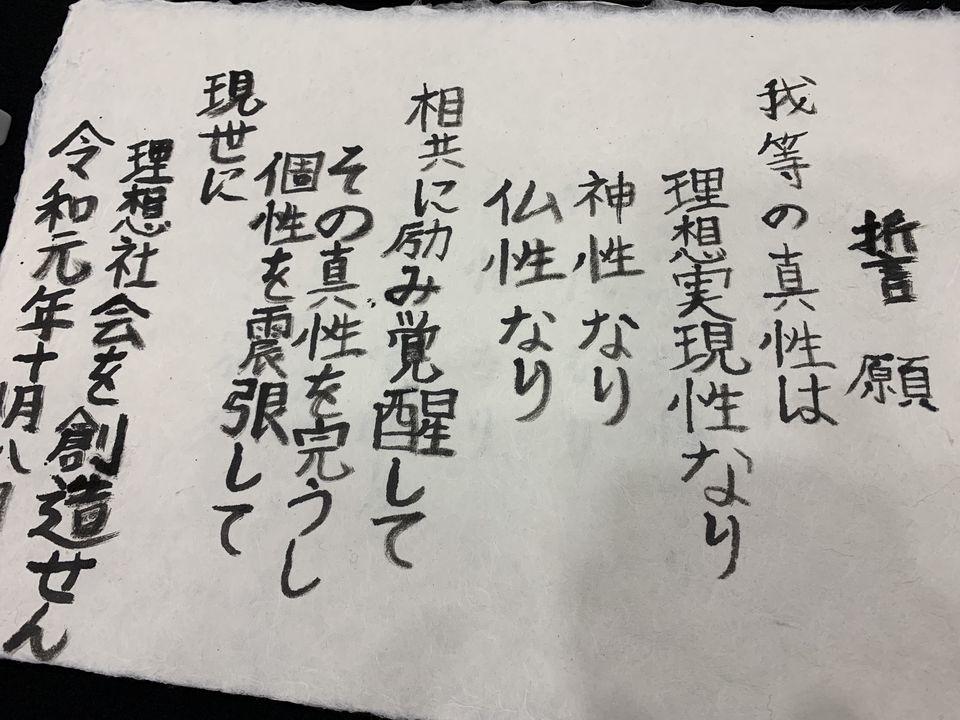 誓願
我等の真性は
理想実現性なり
神性なり
仏性なり
相共に励み覚醒して
その真性を完うし
個性を震張して
現世に
理想社会を創造せん
令和元年十月八